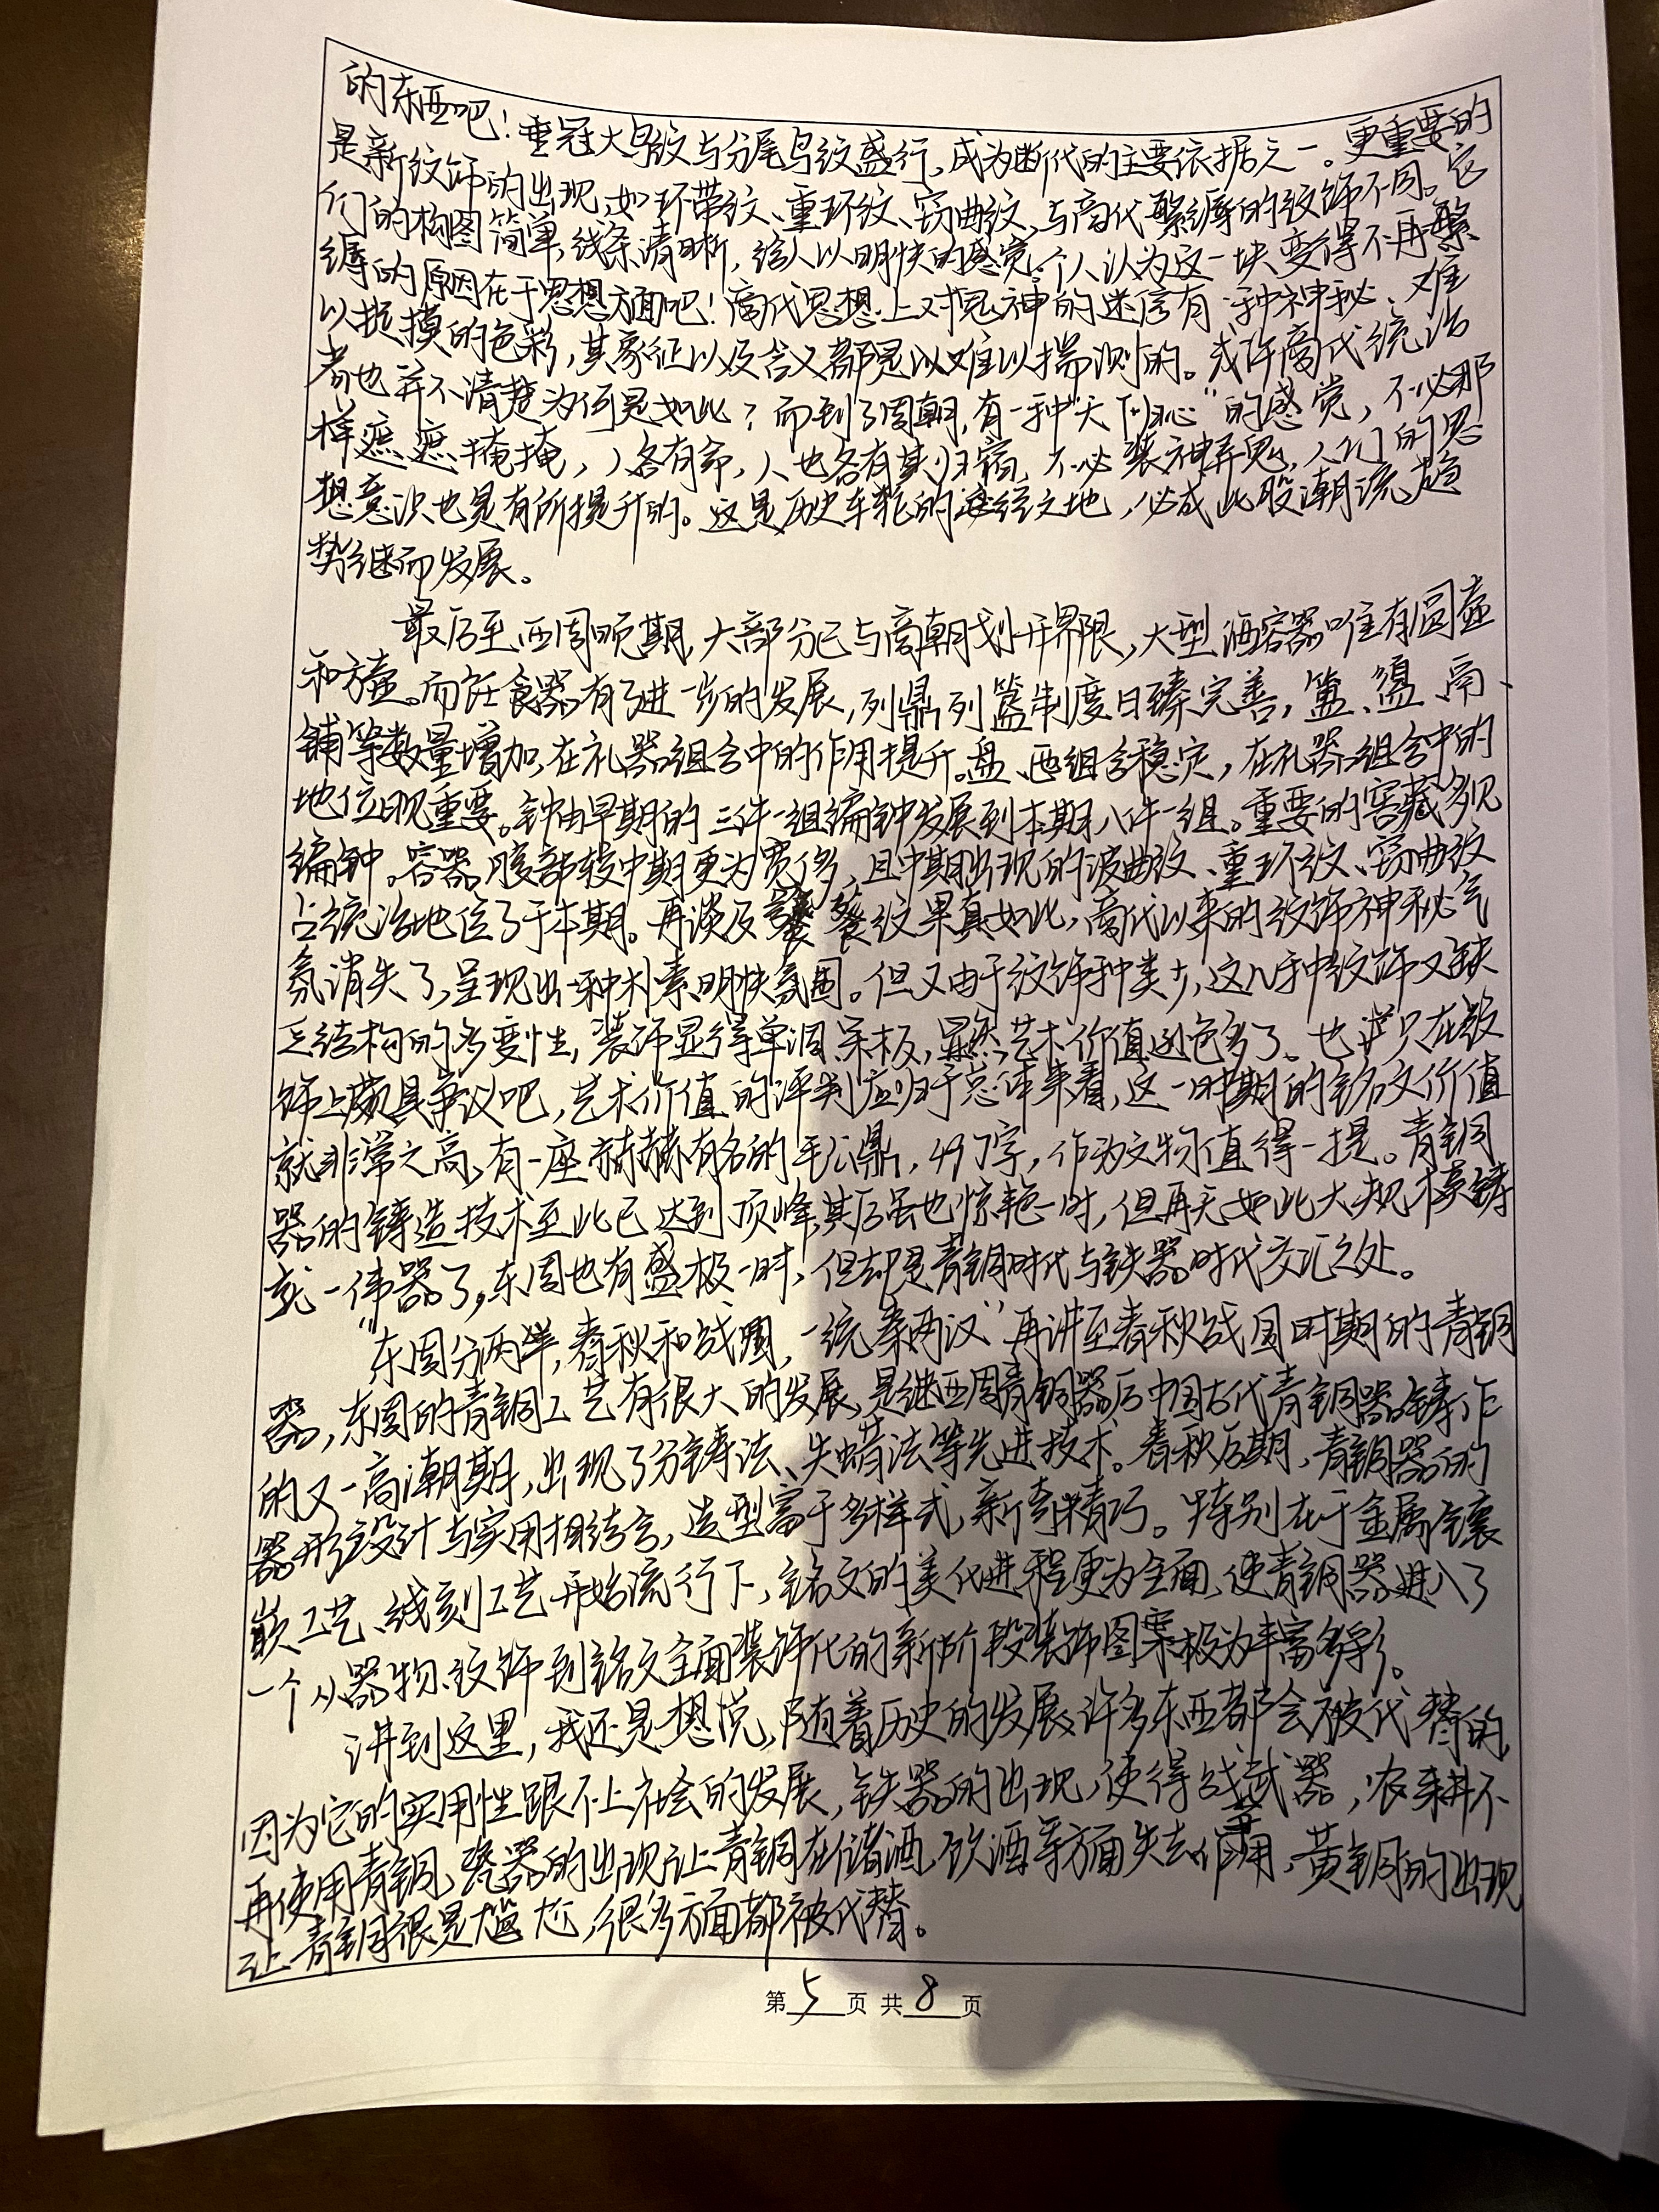 的东西吧！垂冠大鸟纹与分尾鸟纹盛行，成为断代的主要依据之一。更重要的
是新纹饰的出现，如环带纹、重环纹、窃曲纹，与商代繁缛的纹饰不同。它
们的构图简单，线条清晰，给人以明快的感觉。个人认为这一块变得不再繁
缛的原因在于思想方面吧！商代思想上对鬼神的迷信有一种神秘、难
以捉摸的色彩，其象征以及含义都是以难以揣测的。或许商代统治
者也并不清楚为何是如此？而到了周朝，有一种“天下归心”的感觉，不必那
样遮遮掩掩，人各有命，人也各有其归宿，不必装神弄鬼，人们的思
想意识也是有所提升的。这是历史车轮的必经之地，必成此股潮流趋
势继而发展。
最后至西周晚期，大部分已与商朝划开界限，大型酒容器唯有圆壶
和方壶。而饪食器有了进一步的发展，列鼎列簋制度日臻完善，簠、盨、鬲、
铺等数量增加，在礼器组合中的作用提升。盘、匜组合稳定，在礼器组合中的
地位显重要。钟由早期的三件一组编钟发展到本期八件一组。重要的窖藏多见
编钟。容器腹部较中期更为宽侈，且中期出现的波曲纹、重环纹、窃曲纹
占统治地位了于本期。再谈及饕餮纹果真如此，商代以来的纹饰神秘气
氛消失了，呈现出一种朴素明快氛围。但又由于纹饰种类少，这几种纹饰又缺
乏结构的多变性，装饰显得单调、呆板，显然艺术价值逊色多了。也许只在纹
饰上颇具争议吧，艺术价值的评判应归于总体来看，这一时期的铭文价值
就非常之高，有一座赫赫有名的毛公鼎，497字，作为文物值得一提。青铜
器的铸造技术至此已达到顶峰，其后虽也惊艳一时，但再无如此大规模铸
就一伟器了，东周也有盛极一时，但却是青铜时代与铁器时代交汇之处。
“东周分两半，春秋和战国，一统秦两汉”再讲至春秋战国时期的青铜
器，东周的青铜工艺有很大的发展，是继西周青铜器后中国古代青铜器铸作
的又一高潮期，出现了分铸法、失蜡法等先进技术。春秋后期，青铜器的
器形设计与实用相结合，造型富于多样式，新奇精巧。特别在于金属镶
嵌工艺、线刻工艺开始流行下，铭文的美化进程更为全面，使青铜器进入了
一个从器物、纹饰到铭文全面装饰化的新阶段，装饰图案极为丰富多彩。
讲到这里，我还是想说，随着历史的发展，许多东西都会被代替的，
因为它的实用性跟不上社会的发展，铁器的出现，使得战武器，农耕不
再使用青铜，瓷器的出现让青铜在储酒、饮酒等方面失去作用，黄铜的出现
让青铜很是尴尬，很多方面都被代替。
第5页 共8页